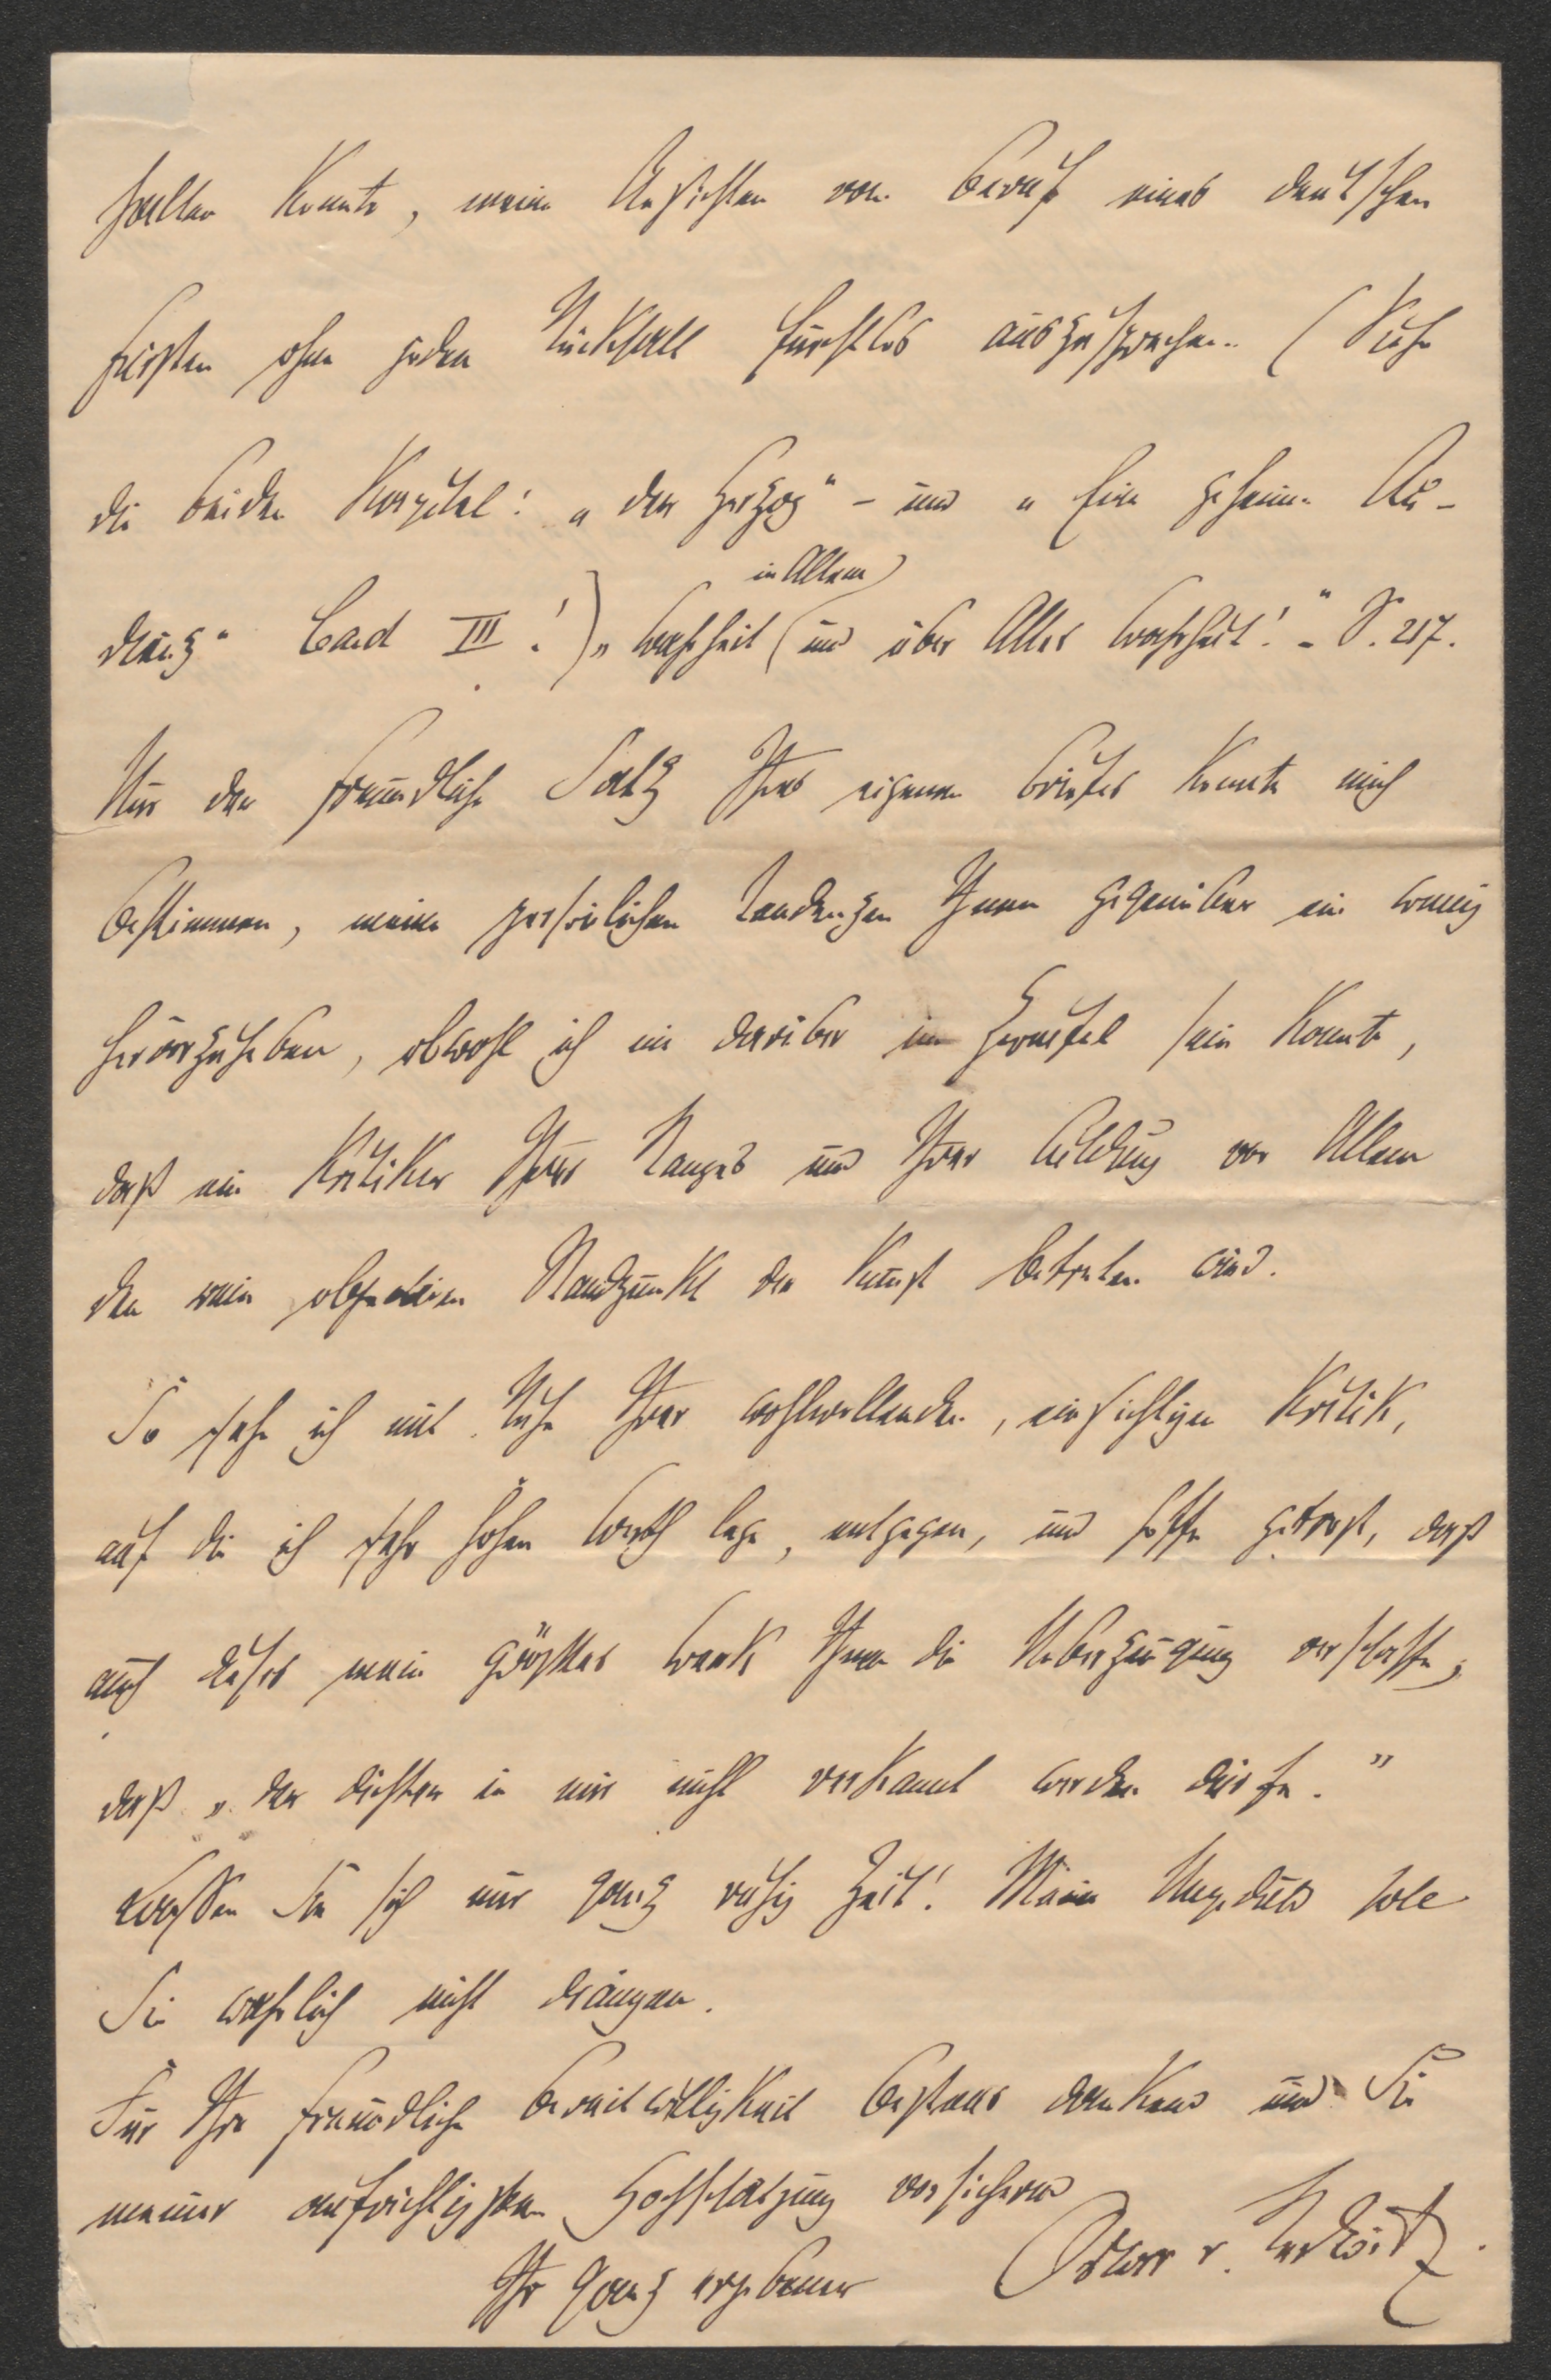 halten konnte, meine Ansichten vom Beruf eines deutschen
Fürsten ohne jeden Rückhalt furchtlos auszusprechen. (Siehe
die beiden Kapitel: „der Herzog" – und „Eine geheime Au-
dienz" Band III.!) „Wahrheit (in Allem) und über Alles Wahrheit!" – S. 217.
Nur der freundliche Satz Ihres eigenen Briefes konnte mich
bestimmen, meine persönlichen Tendenzen Ihnen gegenüber ein wenig
hervorzuheben, obwohl ich nie darüber im Zweifel sein konnte,
daß ein Kritiker Ihres Ranges und Ihrer Bildung vor Allem
den rein objektiven Standpunkt der Kunst betreten wird.
So sehe ich mit Ruhe Ihrer wohlwollenden, einsichtigen Kritik,
auf die ich sehr hohen Werth lege, entgegen, und hoffe getrost, daß
auch dieses mein größtes Werk Ihnen die Ueberzeugung verschaffe,
daß „der Dichter in mir nicht verkannt werden dürfe."
Lassen Sie sich nur ganz ruhig Zeit! Meine Ungeduld soll
Sie wahrlich nicht drängen.
Für Ihre freundliche Bereitwilligkeit bestens dankend und Sie
meiner aufrichtigsten Hochschätzung versichernd
Ihr ganz ergebener Oskar v. Redwitz.